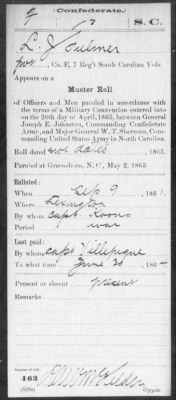 Confederate.
7 S. C.
L. J. Fulmer
Pvt, Co. E, 7 Reg't South Carolina Vols.
Appears on a
Muster Roll
of Officers and Men paroled in accordance with
the terms of a Military Convention entered into
on the 26th day of April, 1865, between General
Joseph E. Johnston, Commanding Confederate
Army, and Major General W. T. Sherman, Com-
manding United States Army in North Carolina.
Roll dated not dated
Paroled at Greensboro, N. C., May 2, 1865
Enlisted:
When Sep 9, 186
Where Lexington
By whom Capt
Period war
Last paid:
By whom Capt Villepigue
To what time June 30, 186
Present or absent present
Remarks:
Number of roll:
463
Copyist.